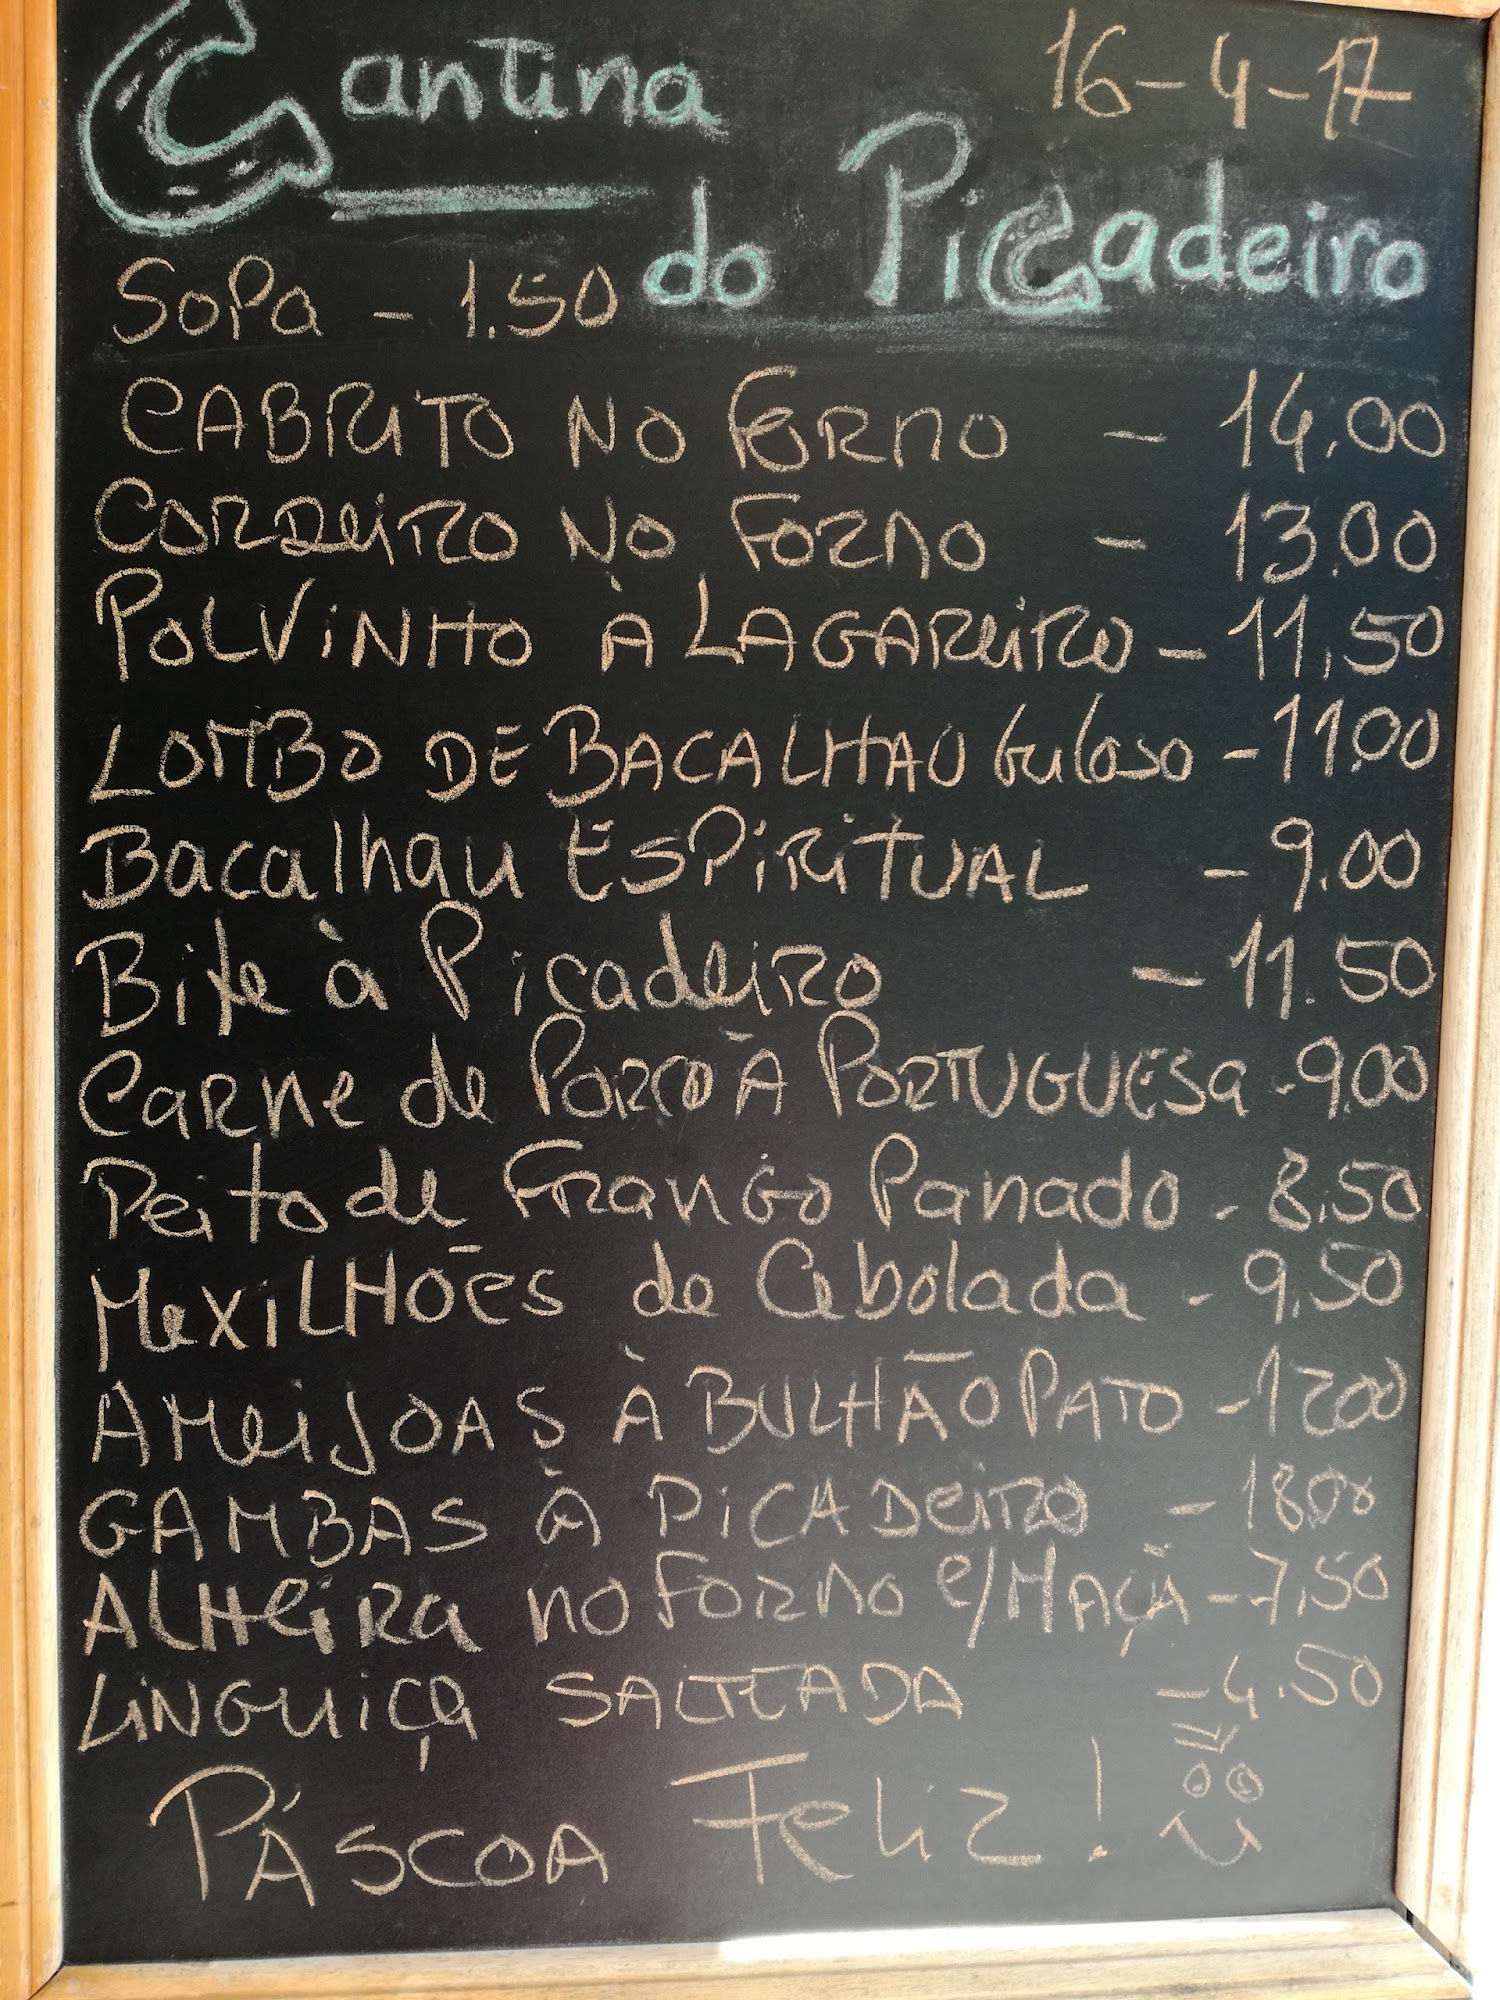 Cantina 16-4-17
do Picadeiro
Sopa - 1.50
CABRITO NO FORNO - 14.00
CORDEIRO NO FORNO - 13.00
POLVINHO À LAGAREIRO - 11,50
LOMBO DE BACALHAU Guloso - 11.00
Bacalhau ESPIRITUAL - 9.00
Bife à Picadeiro - 11.50
Carne de PORCO À PORTUGUESA - 9.00
Peito de Frango Panado - 8.50
MEXILHÕES de Cebolada - 9,50
AMEIJOAS À BULHÃO PATO - 1200
GAMBAS à PICADEIRO - 1800
ALHEIRA NO FORNO c/MAÇÃ - 7,50
LINGUIÇA SALTEADA - 4.50
PÁSCOA Feliz!